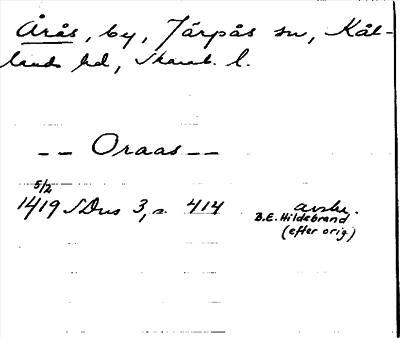 Årås, by, Järpås sn, Kål-
lands hd, Skarab. l.
-- Oraas --
5/2
1419 SDns 3, s. 414 avskr.
B.E. Hildebrand
(efter orig.)